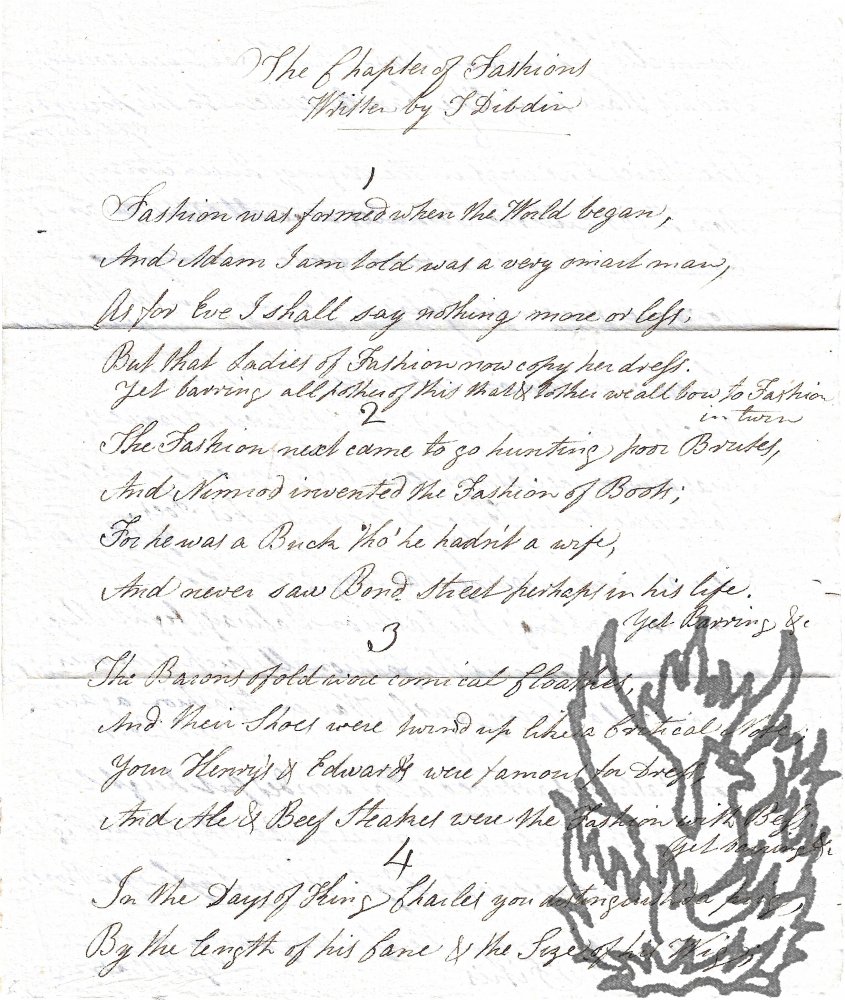 The Chapter of Fashions
Written by T Dibdin
1
Fashion was formed when the World began,
And Adam I am told was a very smart man,
As for Eve I shall say nothing more or less,
But that Ladies of Fashion now copy her dress.
Yet barring all pother of this that & tother we all bow to Fashion
in turn
2
The Fashion next came to go hunting poor Brutes,
And Nimrod invented the Fashion of Boots;
For he was a Buck tho' he hadn't a wife,
And never saw Bond Street perhaps in his life.
Yet Barring &c
3
The Barons of old wore comical
And their Shoes were turnd up like a Critical Note;
Your Henry's & Edwards were famous for Dress,
And Ale & Beef Steakes were the Fashion with Bess
Yet barring &c
4
In the Days of King Charles you distinguish'd a prig,
By the length of his Cane & the Size of his Wig;